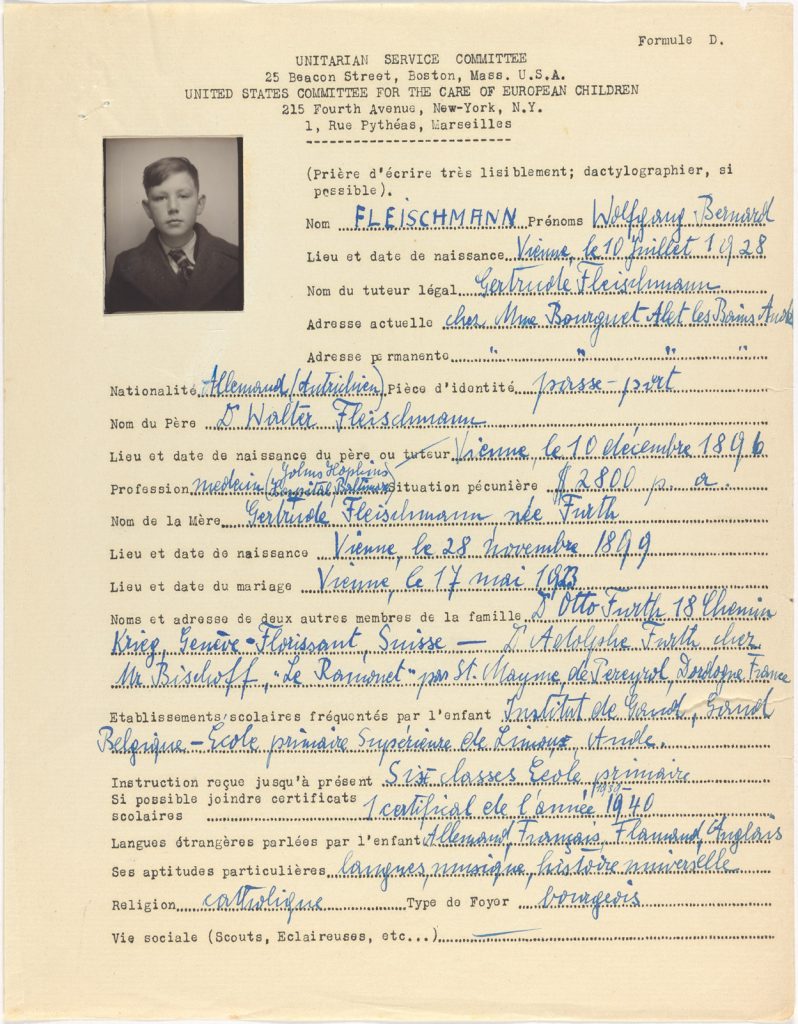 Formule D.
UNITARIAN SERVICE COMMITTEE
25 Beacon Street, Boston, Mass. U.S.A.
UNITED STATES COMMITTEE FOR THE CARE OF EUROPEAN CHILDREN
215 Fourth Avenue, New-York, N.Y.
1, Rue Pythéas, Marseilles
(Prière d'écrire très lisiblement; dactylographier, si
possible).
Nom FLEISCHMANN Prénoms Wolfgang Bernard
Lieu et date de naissance Vienne, le 10 juillet 1928
Nom du tuteur légal Gertrude Fleischmann
Adresse actuelle chez Mme Bourguet-Alet les Bains Aude
Adresse permanente " " " "
Nationalité Allemand (Autrichien) Pièce d'identité passe-port
Nom du Père Dr Walter Fleischmann
Lieu et date de naissance du père ou tuteur Vienne, le 10 décembre 1896
Profession medecin (Johns Hopkins Hospital, Baltimore) Situation pécunière $ 2800 p. a.
Nom de la Mère Gertrude Fleischmann née Furth
Lieu et date de naissance Vienne, le 28 novembre 1899
Lieu et date du mariage Vienne, le 17 mai 1923
Noms et adresse de deux autres membres de la famille Dr Otto Furth 18 Chemin
Krieg, Genève-Florissant, Suisse — Dr Adolphe Furth chez
Mr Bischoff, "Le Ramonet" par St. Mayme, de Pereyrol, Dordogne France
Etablissements scolaires fréquentés par l'enfant Institut de Gand, Gand
Belgique – Ecole primaire Supérieure de Limoux, Aude.
Instruction reçue jusqu'à présent Six classes Ecole primaire
Si possible joindre certificats
scolaires 1 certificat de l'année 1939-1940
Langues étrangères parlées par l'enfant Allemand, Français, Flamand, Anglais
Ses aptitudes particulières langues, musique, histoire universelle
Religion catholique Type de Foyer bourgeois
Vie sociale (Scouts, Eclaireuses, etc...) —